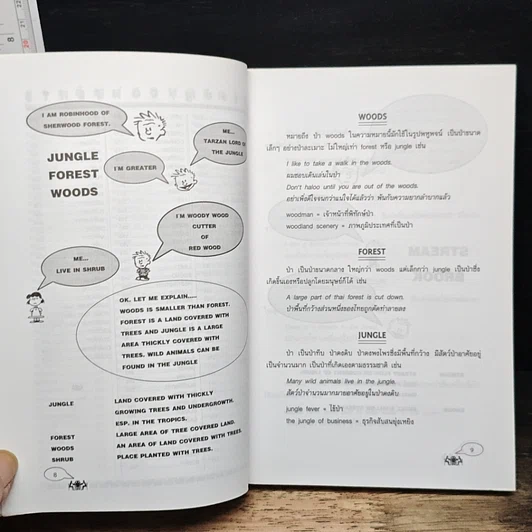 I AM ROBINHOOD OF
SHERWOOD FOREST.
ME...
TARZAN LORD
THE JUNGLE
I'M GREATER
JUNGLE
FOREST
WOODS
I'M WOODY WOOD
CUTTER
OF
RED WOOD
ME...
LIVE IN SHRUB
OK. LET ME EXPLAIN.....
WOODS IS SMALLER THAN FOREST.
FOREST IS A LAND COVERED WITH
TREES AND JUNGLE IS A LARGE
AREA THICKLY COVERED WITH
TREES. WILD ANIMALS CAN BE
FOUND IN THE JUNGLE
JUNGLE LAND COVERED WITH THICKLY
GROWING TREES AND UNDERGROWTH.
ESP. IN THE TROPICS.
FOREST LARGE AREA OF TREE COVERED LAND.
WOODS AN AREA OF LAND COVERED WITH TREES.
SHRUB PLACE PLANTED WITH TREES.
8
WOODS
หมายถึง ป่า woods ในความหมายนี้มักใช้ในรูปพหูพจน์ เป็นป่าขนาด
เล็กๆ อย่างป่าละเมาะ ไม่ใหญ่เท่า forest หรือ jungle เช่น
I like to take a walk in the woods.
ผมชอบเดินเล่นในป่า
Don't haloo until you are out of the woods.
อย่าเพิ่งดีใจจนกว่าแน่ใจได้แล้วว่า พ้นกับความยากลำบากแล้ว
woodman = เจ้าหน้าที่พิทักษ์ป่า
woodland scenery = ภาพภูมิประเทศที่เป็นป่า
FOREST
ป่า เป็นป่าขนาดกลาง ใหญ่กว่า woods แต่เล็กกว่า jungle เป็นป่าซึ่ง
เกิดขึ้นเองหรือปลูกโดยมนุษย์ก็ได้ เช่น
A large part of thai forest is cut down.
ป่าพื้นที่กว้างส่วนหนึ่งของไทยถูกตัดทำลายลง
JUNGLE
ป่า เป็นป่าทึบ ป่าดงดิบ ป่าดงพงไพรซึ่งมีพื้นที่กว้าง มีสัตว์ป่าอาศัยอยู่
เป็นจำนวนมาก เป็นป่าที่เกิดเองตามธรรมชาติ เช่น
Many wild animals live in the jungle.
สัตว์ป่าจำนวนมากมายอาศัยอยู่ในป่าดงดิบ
jungle fever = ไข้ป่า
the jungle of business = ธุรกิจสับสนยุ่งเหยิง
9